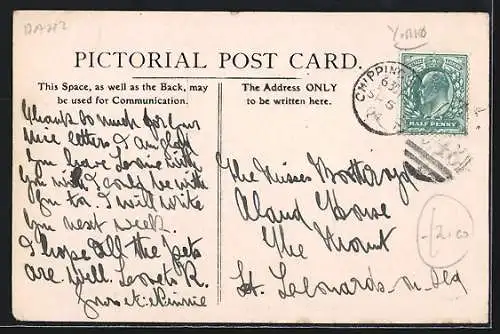 PICTORIAL POST CARD.
This Space, as well as the Back, may
be used for Communication.
Thanks so much for your
nice letters I am glad
you have Louie with
you wish I could be with
you too. I will write
you next week.
I hope all the pets
are well. Love to R.
Yours
The Address ONLY
to be written here.
The Misses
House
The Mount
St. Leonards-on-Sea
CHIPPING
HALF PENNY
2.00